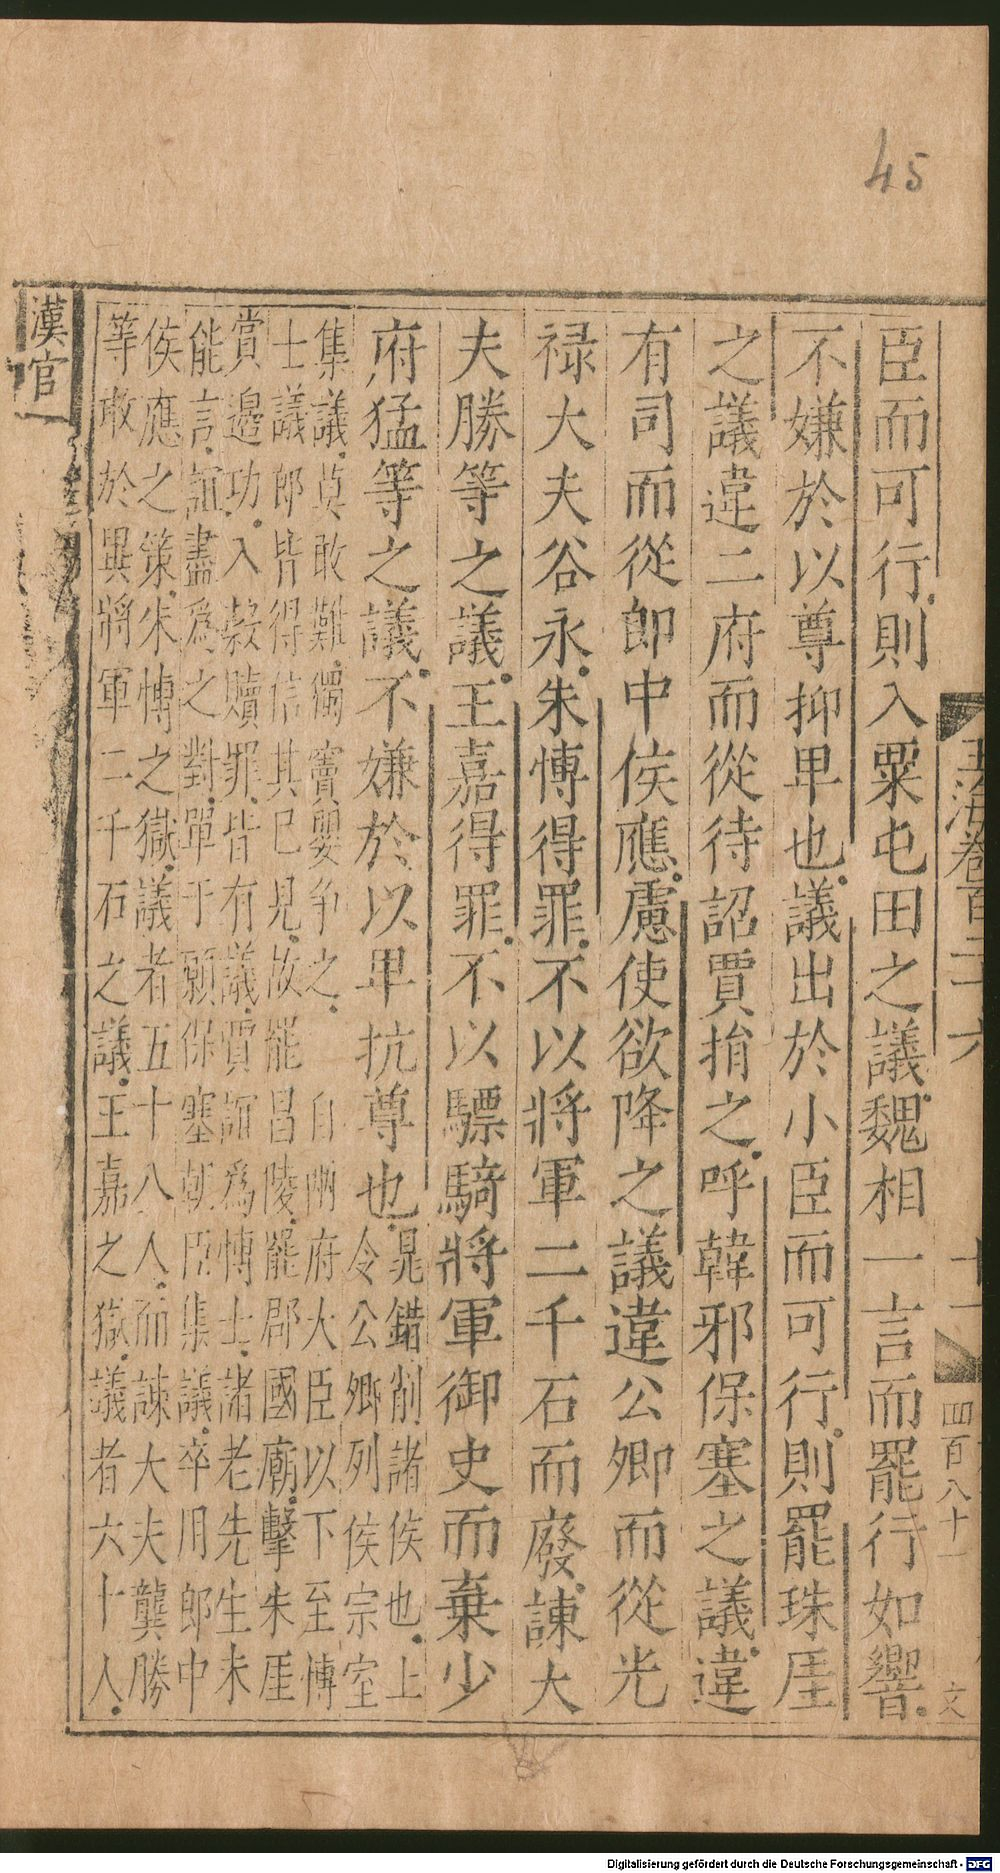 45
玉海卷百二六
十一
四百八十一
文
臣而可行則入粟屯田之議魏相一言而罷行如響
不嫌於以尊抑卑也議出於小臣而可行則罷珠厓
之議違二府而從待詔賈捐之呼韓邪保塞之議違
有司而從郎中侯應慮使欲降之議違公卿而從光
祿大夫谷永朱博得罪不以將軍二千石而廢諫大
夫勝等之議王嘉得罪不以驃騎將軍御史而棄少
府猛等之議不嫌於以卑抗尊也 晁錯削諸侯也上
令公卿列侯宗室
集議莫敢難獨竇嬰爭之 自兩府大臣以下至博
士議郎皆得信其已見故罷昌陵罷郡國廟擊朱厓
賞邊功入穀贖罪皆有議賈誼為博士諸老先生未
能言誼盡為之對單于願保塞朝臣集議卒用郎中
侯應之策朱博之獄議者五十八人而諫大夫龔勝
等敢於異將軍二千石之議王嘉之獄議者六十人
漢官
Digitalisierung gefördert durch die Deutsche Forschungsgemeinschaft - DFG